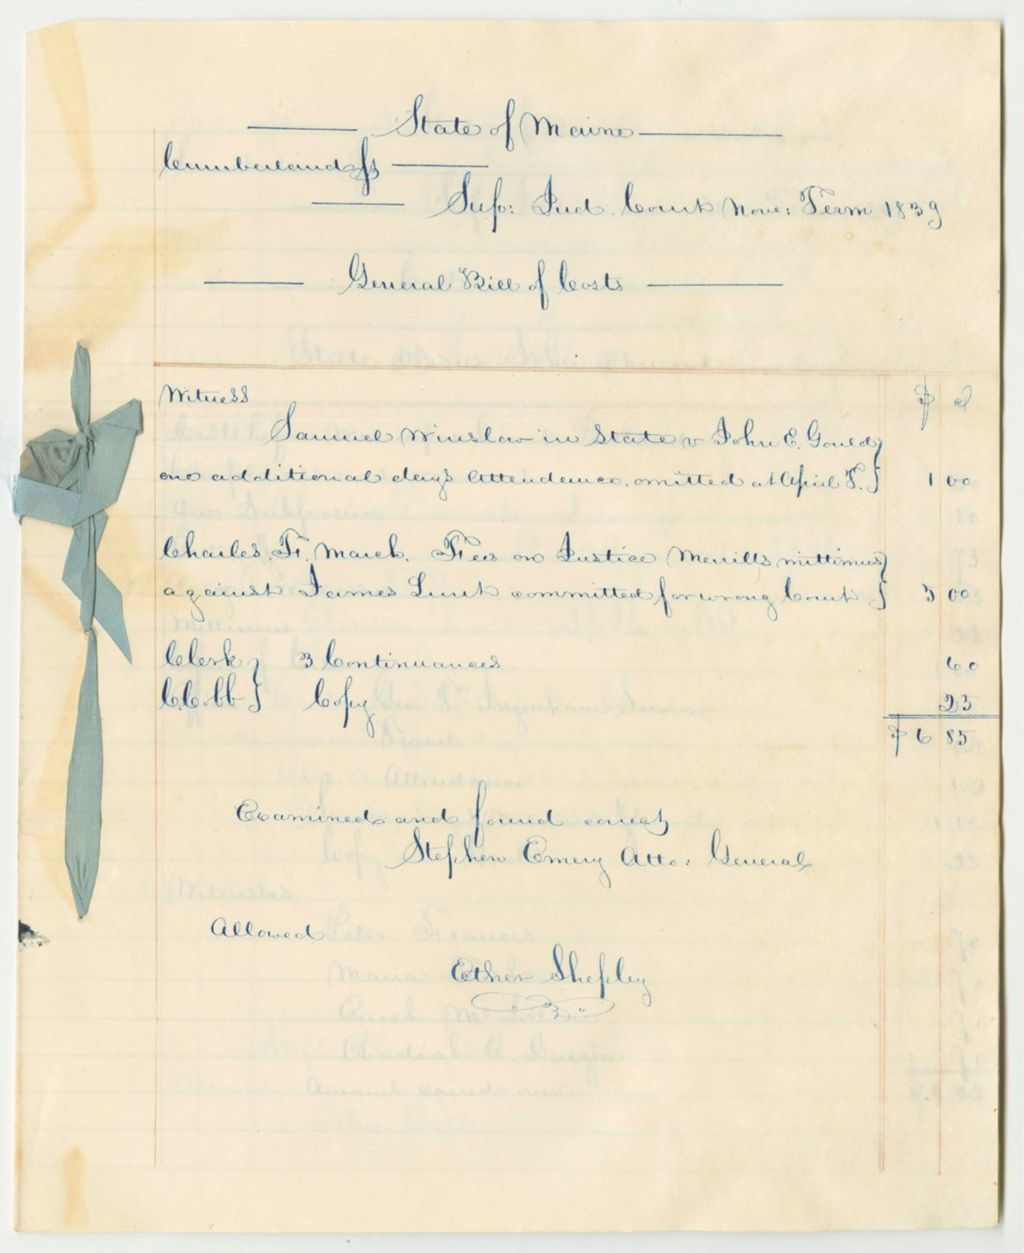 State of Maine
Cumberland ss
Sup: Jud. Court Nove: Term 1839
General Bill of Costs
Witness $ c
Samuel Winslow in State v John E. Gould
one additional day's attendance, omitted at April T. 1 00
Charles H. March. Fees on Justice Merrills mittimus
against James Lunt committed for wrong Court 5 00
Clerk 3 Continuances 60
C. Cobb Copy 25
$ 6 85
Examined and found correct
Stephen Emery Atto: General
Allowed
Ether Shepley